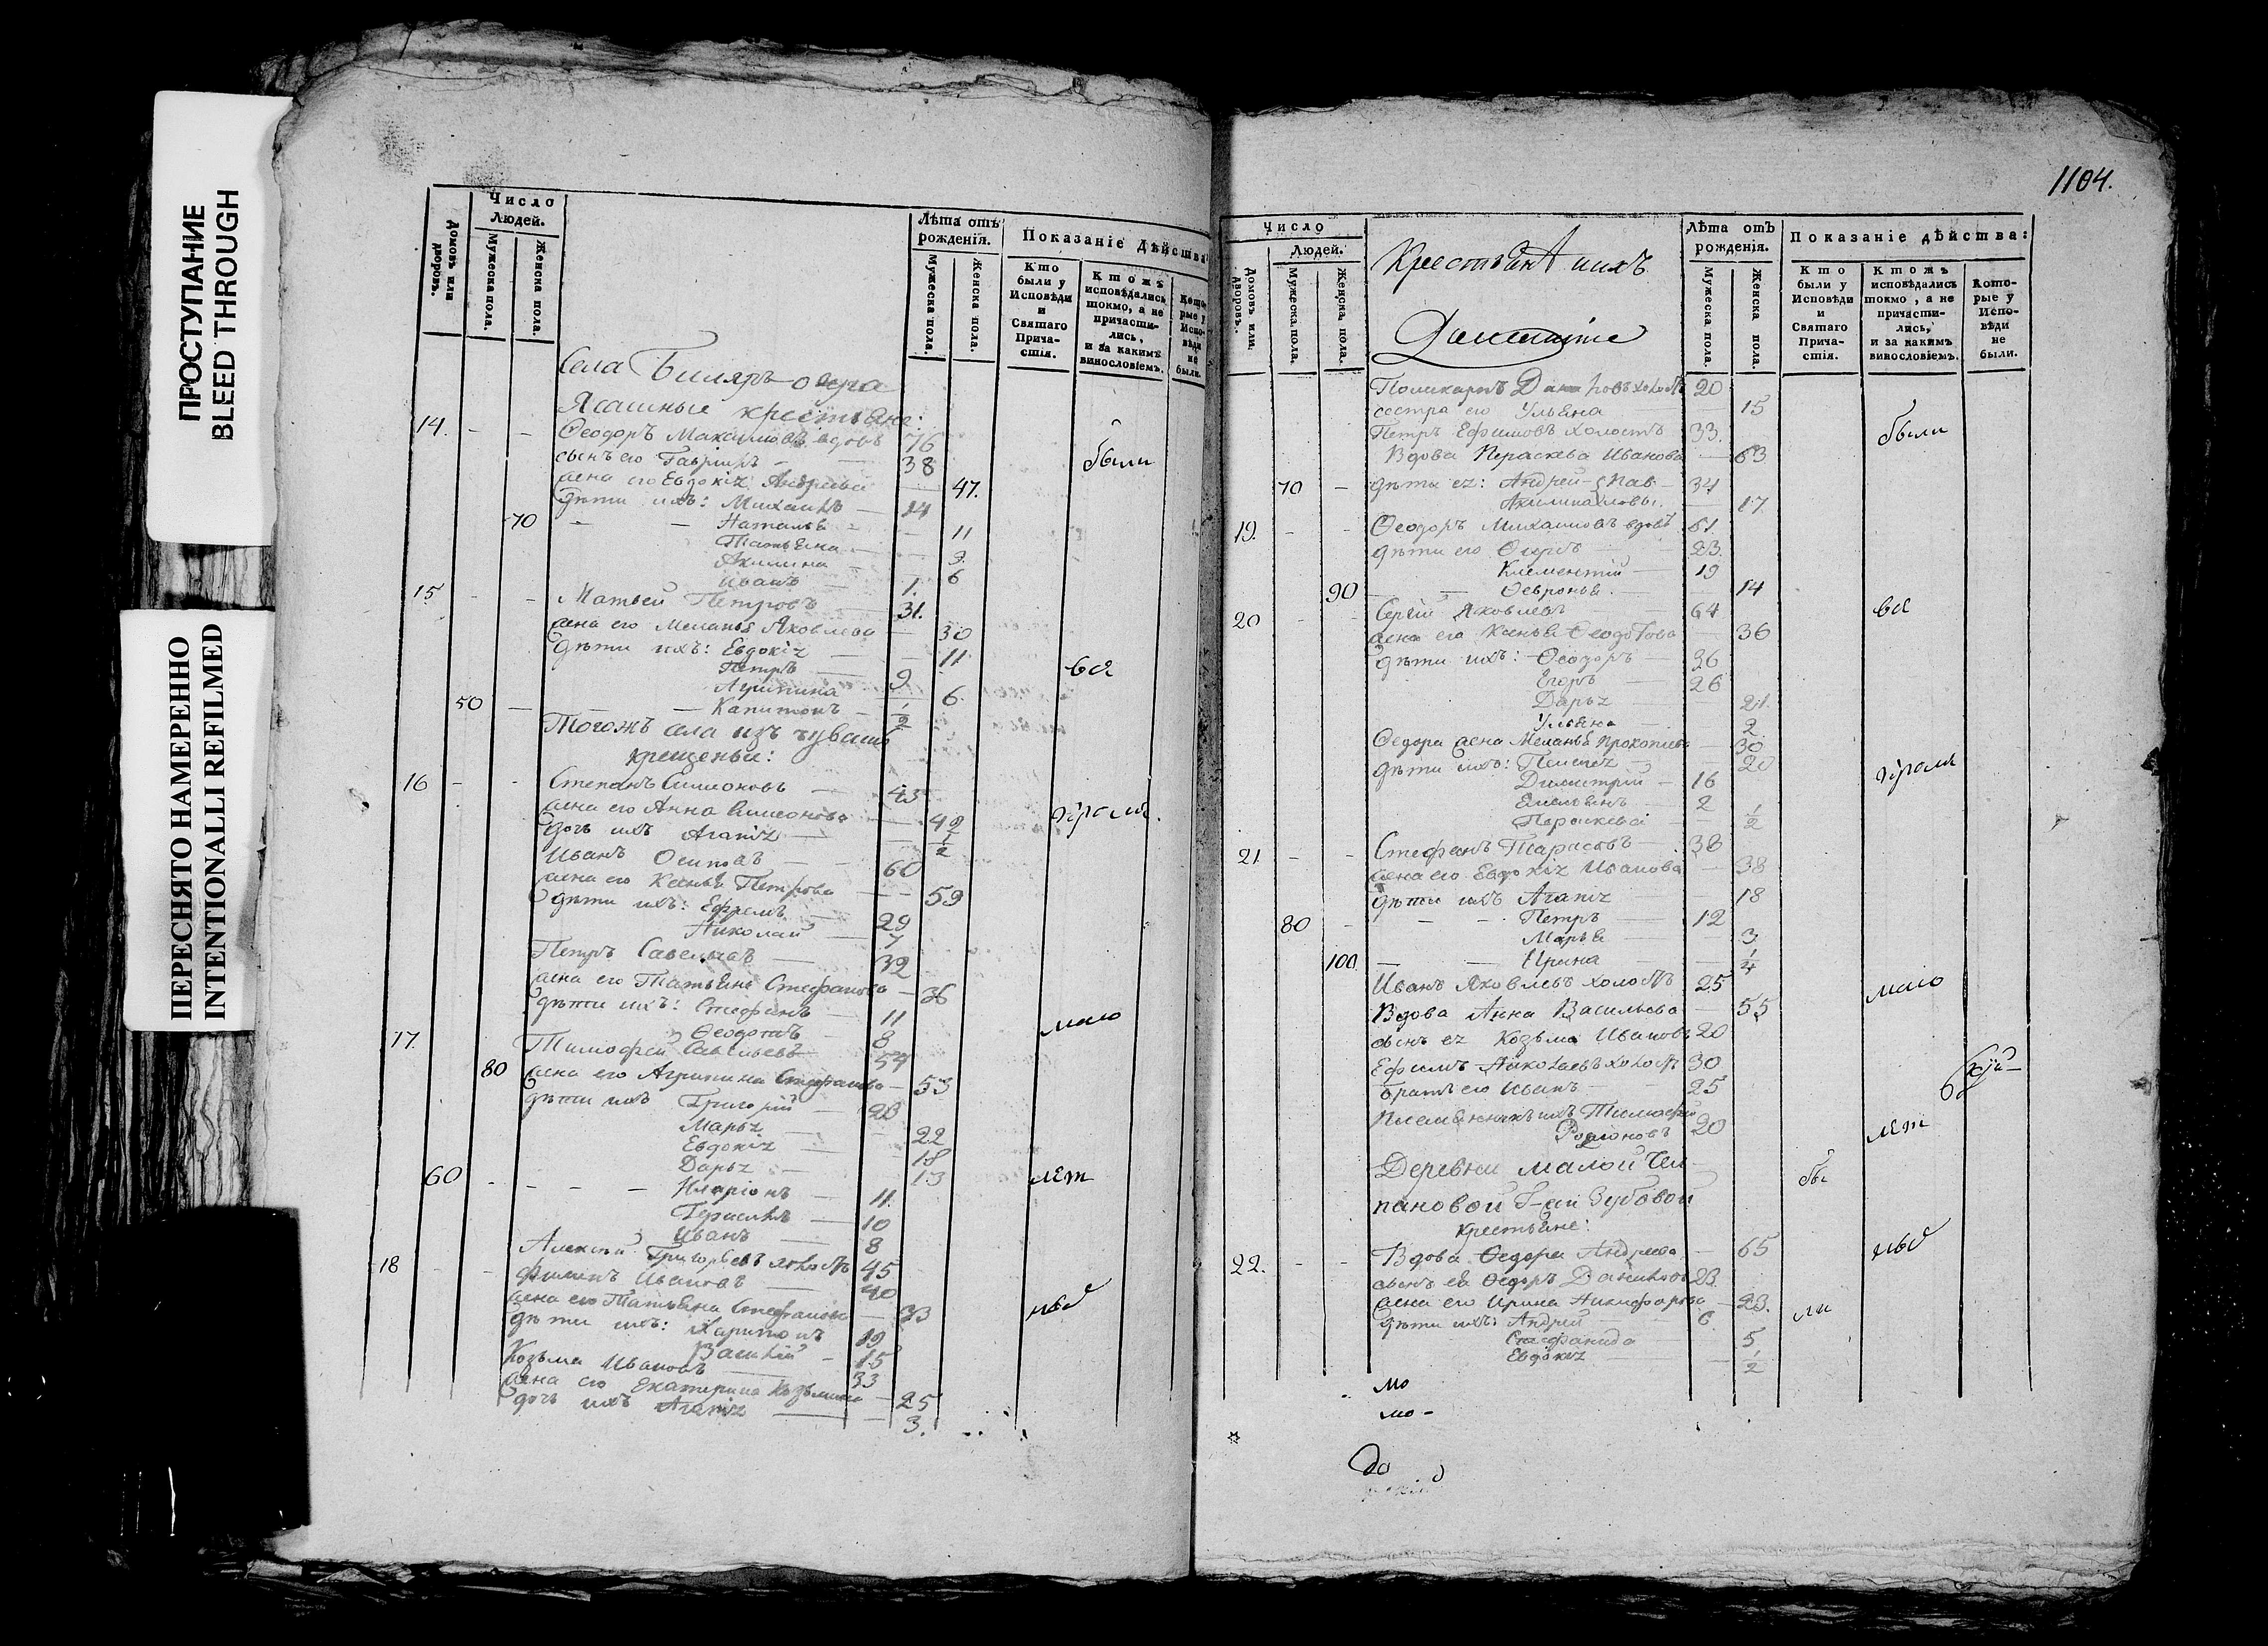 ПРОСТУПАНИЕ
BLEED THROUGH
ПЕРЕСНЯТО НАМЕРЕННО
INTENTIONALLI REFILMED
Число
Людей.
Домовъ или дворовъ.
Мужеска пола.
Женска пола.
Лѣта отъ рожденія.
Мужеска пола.
Женска пола.
Показаніе Дѣйства
Кто были у Исповѣди и Святаго Причастія.
Ктожъ исповѣдались токмо, а не причастились, и за какимъ винословіемъ.
Которые у Исповѣди не были.
Села Биляръ озера
Ясашные крестьяне:
14. Ѳеодоръ Максимовъ вдовъ 76
сынъ его Гаврiилъ 38 были
жена его Евдокiя Андреева 47.
дѣти ихъ: Михаилъ 14
70 Наталья 11
Татьяна 9
Акилина 6
Иванъ 1.
15 Матвей Петровъ 31.
жена его Меланья Яковлева 30
дѣти ихъ: Евдокiя 11
Петръ 9 вси
Агрипина 6.
50 Капитонъ 1/2
Тогожъ села изъ чувашъ
крещеныи:
16 Степанъ Симионовъ 43
жена его Анна Симеонова 42
дочь ихъ Агапiя 1/2
Иванъ Осиповъ 60
жена его Ксенья Петрова 59
дѣти ихъ: Ефремъ 29
Николай 7
Петръ Савельевъ 32
жена его Татьяна Стефанова 36
дѣти ихъ: Стефанъ 11
Ѳеодотъ 8 мало
17. Тимофей Савельевъ 57
80 жена его Агрипина Стефанова 53
дѣти ихъ Григорiй 23
Марья 22
Евдокiя 18
Дарья 13
60 Иларiонъ 11. лѣт
Герасимъ 10
Иванъ 8
Алексѣй Григорьевъ холостъ 45
18 Филипъ Ивановъ 40
жена его Татьяна Стефанова 33
дѣти ихъ: Харитонъ 19
Василiй 15
Козьма Ивановъ 33
жена его Екатерина Козьмина 25
дочь ихъ Агапiя 3.
1104.
Число
Людей.
Домовъ или дворовъ.
Мужеска пола.
Женска пола.
Лѣта отъ рожденія.
Мужеска пола.
Женска пола.
Показаніе дѣйства:
Кто были у Исповѣди и Святаго Причастія.
Ктожъ исповѣдались токмо, а не причастились, и за какимъ винословіемъ.
Которые у Исповѣди не были.
Поликарпъ холостъ 20
сестра его Ульяна 15
Петръ Ефимовъ холостъ 33. были
Вдова Пераскева Иванова 63
70 дѣти ея: Андрей Пав- 34
Акилина ловы. 17
19. Ѳеодоръ Михаиловъ вдовъ 61
дѣти его 23.
Климентiй 19
90 Ѳевронья 14
20 Сергiй Яковлевъ 64 вси
жена его Ксенья Ѳеодотова 36
дѣти ихъ: Ѳеодоръ 36
Егоръ 26
Дарья 21
Ульяна 2
Ѳедора жена Меланья Прокопиева 30
дѣти ихъ: 20
Димитрiй 16
Емельянъ 2
Пераскева 1/2
21 Стефанъ Тарасовъ 38
жена его Евдокiя Иванова 38
дѣти ихъ Агапiя 18
80 Петръ 12
Марья 3
100 Ирина 1/4
Иванъ Яковлевъ холостъ 25 мало
Вдова Анна Васильева 55
сынъ ея Козьма Ивановъ 20
Ефимъ Николаевъ холостъ 30
братъ его Иванъ 25
Племянникъ ихъ Тимофей
Родионовъ 20 лѣт
Деревни малой Чел-
пановой Г-жи Зубовой бы
крестьяне:
22. Вдова Ѳедора Андреева 65
сынъ ея Ѳедоръ Даниловъ 23.
жена его Ирина Никифорова 23. ли
дѣти ихъ: Андрей 6
Стефанида 5
Евдокiя 1/2
мо
мо-
до